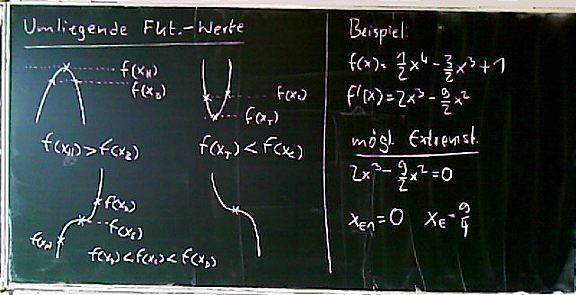 Umliegende Fkt.-Werte
f(x_H)
f(x_B)
f(x_T)
f(x_H) > f(x_B)
f(x_T) < f(x_C)
f(x_S)
f(x_A) < f(x_S) < f(x_D)
Beispiel:
f(x) = 1/2 x^4 - 3/2 x^3 + 1
f'(x) = 2x^3 - 9/2 x^2
mögl. Extremst.
2x^3 - 9/2 x^2 = 0
x_E1 = 0 x_E = 9/4